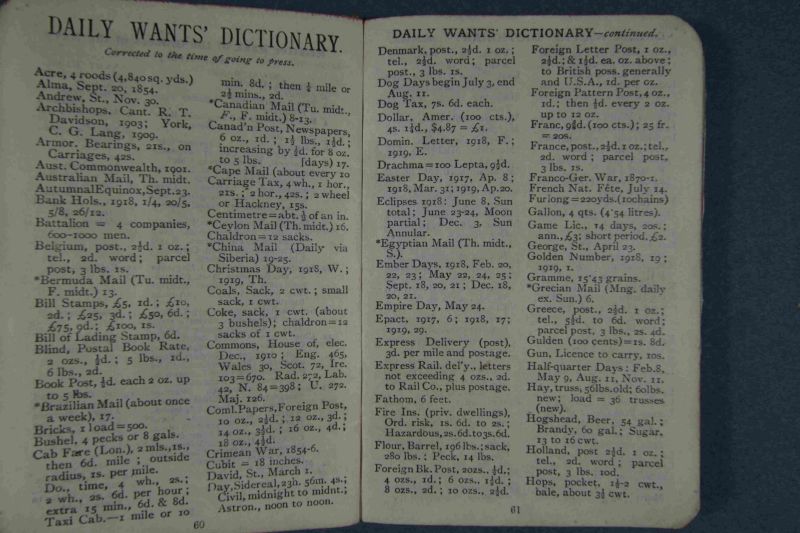 DAILY WANTS' DICTIONARY.
Corrected to the time of going to press.
Acre, 4 roods (4,840 sq. yds.)
Alma, Sept. 20, 1854.
Andrew, St., Nov. 30.
Archbishops, Cant. R. T.
Davidson, 1903; York,
C. G. Lang, 1909.
Armor. Bearings, 21s., on
Carriages, 42s.
Aust. Commonwealth, 1901.
Australian Mail, Th. midt.
Autumnal Equinox, Sept. 23.
Bank Hols., 1918, 1/4, 20/5,
5/8, 26/12.
Battalion = 4 companies,
600-1000 men.
Belgium, post., 2½d. 1 oz.;
tel., 2d. word; parcel
post, 3 lbs. 1s.
*Bermuda Mail (Tu. midt.,
F. midt.) 13.
Bill Stamps, £5, 1d.; £10,
2d.; £25, 3d.; £50, 6d.;
£75, 9d.; £100, 1s.
Bill of Lading Stamp, 6d.
Blind, Postal Book Rate,
2 ozs., ½d.; 5 lbs., 1d.,
6 lbs., 2d.
Book Post, ½d. each 2 oz. up
to 5 lbs.
*Brazilian Mail (about once
a week), 17.
Bricks, 1 load = 500.
Bushel, 4 pecks or 8 gals.
Cab Fare (Lon.), 2 mls., 1s.,
then 6d. mile; outside
radius, 1s. per mile.
Do., time, 4 wh., 2s.;
2 wh., 2s. 6d. per hour;
extra 15 min., 6d. & 8d.
Taxi Cab.—1 mile or 10
60
min. 8d.; then ¼ mile or
2½ mins., 2d.
*Canadian Mail (Tu. midt.,
F., F. midt.) 8-13.
Canad'n Post, Newspapers,
6 oz., 1d.; 1½ lbs., 1½d.;
increasing by ½d. for 8 oz.
to 5 lbs. [days) 17.
*Cape Mail (about every 10
Carriage Tax, 4 wh., 1 hor.,
21s.; 2 hor., 42s.; 2 wheel
or Hackney, 15s.
Centimetre = abt. ⅖ of an in.
*Ceylon Mail (Th. midt.) 16.
Chaldron = 12 sacks.
*China Mail (Daily via
Siberia) 19-25.
Christmas Day, 1918, W.;
1919, Th.
Coals, Sack, 2 cwt.; small
sack, 1 cwt.
Coke, sack, 1 cwt. (about
3 bushels); chaldron = 12
sacks of 1 cwt.
Commons, House of, elec.
Dec., 1910; Eng. 465,
Wales 30, Scot. 72, Ire.
103 = 670. Rad. 272, Lab.
42, N. 84 = 398; U. 272.
Maj. 126.
Coml. Papers, Foreign Post,
10 oz., 2½d.; 12 oz., 3d.;
14 oz., 3½d.; 16 oz., 4d.;
18 oz., 4½d.
Crimean War, 1854-6.
Cubit = 18 inches.
David, St., March 1.
Day, Sidereal, 23h. 56m. 4s.;
Civil, midnight to midnt.;
Astron., noon to noon.
DAILY WANTS' DICTIONARY—continued.
Denmark, post., 2½d. 1 oz.;
tel., 2½d. word; parcel
post., 3 lbs. 1s.
Dog Days begin July 3, end
Aug. 11.
Dog Tax, 7s. 6d. each.
Dollar, Amer. (100 cts.),
4s. 1½d., $4.87 = £1.
Domin. Letter, 1918, F.;
1919, E.
Drachma = 100 Lepta, 9½d.
Easter Day, 1917, Ap. 8;
1918, Mar. 31; 1919, Ap. 20.
Eclipses 1918: June 8, Sun
total; June 23-24, Moon
partial; Dec. 3, Sun
Annular.
*Egyptian Mail (Th. midt.,
S.).
Ember Days, 1918, Feb. 20,
22, 23; May 22, 24, 25;
Sept. 18, 20, 21; Dec. 18,
20, 21.
Empire Day, May 24.
Epact, 1917, 6; 1918, 17;
1919, 29.
Express Delivery (post),
3d. per mile and postage.
Express Rail. del'y., letters
not exceeding 4 ozs., 2d.
to Rail Co., plus postage.
Fathom, 6 feet.
Fire Ins. (priv. dwellings),
Ord. risk, 1s. 6d. to 2s.;
Hazardous, 2s. 6d. to 3s. 6d.
Flour, Barrel, 196 lbs.; sack,
280 lbs.; Peck, 14 lbs.
Foreign Bk. Post, 2 ozs., ½d.;
4 ozs., 1d.; 6 ozs., 1½d.;
8 ozs., 2d.; 10 ozs., 2½d.
Foreign Letter Post, 1 oz.,
2½d.; & 1½d. ea. oz. above;
to British poss. generally
and U.S.A., 1d. per oz.
Foreign Pattern Post, 4 oz.,
1d.; then ½d. every 2 oz.
up to 12 oz.
Franc, 9½d. (100 cts.); 25 fr.
= 20s.
France, post., 2½d. 1 oz.; tel.,
2d. word; parcel post,
3 lbs. 1s.
Franco-Ger. War, 1870-1.
French Nat. Fête, July 14.
Furlong = 220 yds. (10 chains)
Gallon, 4 qts. (4·54 litres).
Game Lic., 14 days, 20s.;
ann., £3; short period, £2.
George, St., April 23.
Golden Number, 1918, 19;
1919, 1.
Gramme, 15·43 grains.
*Grecian Mail (Mng. daily
ex. Sun.) 6.
Greece, post., 2½d. 1 oz.;
tel., 5½d. to 6d. word;
parcel post, 3 lbs., 2s. 4d.
Gulden (100 cents) = 1s. 8d.
Gun, Licence to carry, 10s.
Half-quarter Days: Feb. 8,
May 9, Aug. 11, Nov. 11.
Hay, truss, 56 lbs. old; 60 lbs.
new; load = 36 trusses
(new).
Hogshead, Beer, 54 gal.;
Brandy, 60 gal.; Sugar,
13 to 16 cwt.
Holland, post 2½d. 1 oz.;
tel., 2d. word; parcel
post, 3 lbs. 10d.
Hops, pocket, 1½-2 cwt.,
bale, about 3½ cwt.
61